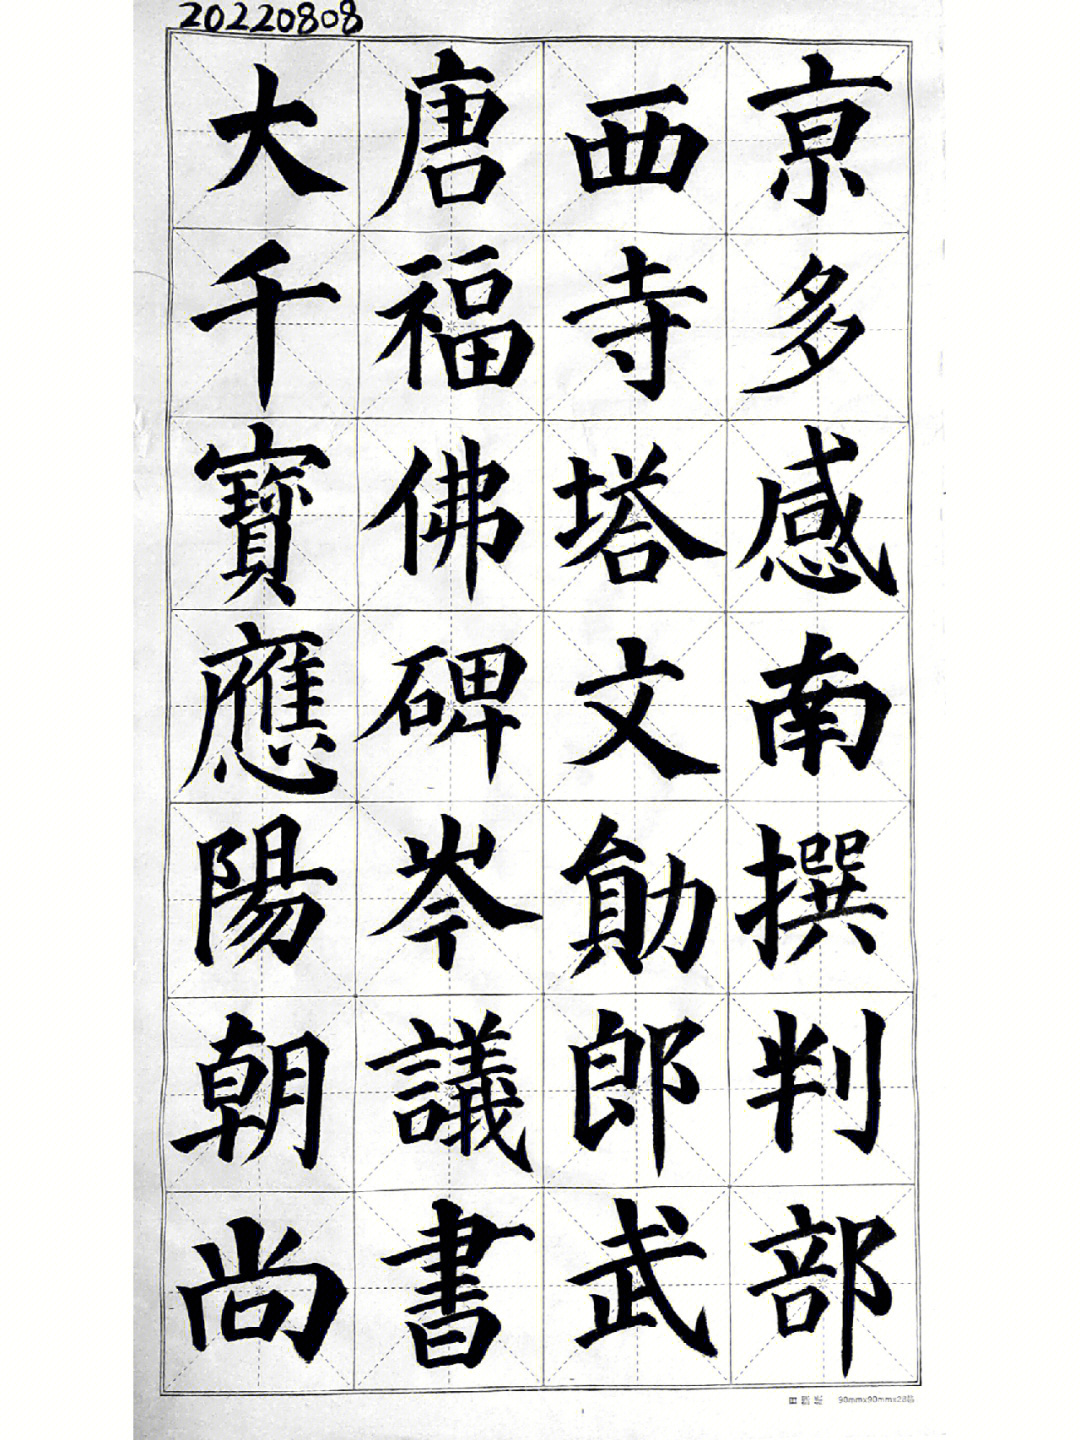 20220808
大唐西亰
千福寺多
寶佛塔感
應碑文南
陽岑勛撰
朝議郎判
尚書武部
90mmx90mmx28格